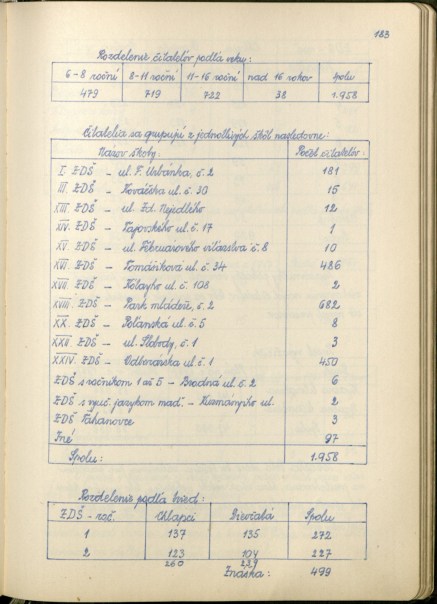 183
Rozdelenie čitateľov podľa veku:
6-8 roční 8-11 roční 11-16 roční nad 16 rokov spolu
479 719 722 38 1.958
Čitatelia sa grupujú z jednotlivých škôl nasledovne:
Názov školy: Počet čitateľov:
I. ZDŠ - ul. F. Urbánka, č. 2 181
III. ZDŠ - Kováčska ul. č. 30 15
XIII. ZDŠ - ul. Zd. Nejedlého 12
XIV. ZDŠ - Tajovského ul. č. 17 1
XV. ZDŠ - ul. Februárového víťazstva č. 8 10
XVI. ZDŠ - Tomášikova ul. č. 34 486
XVII. ZDŠ - ul. č. 108 2
XVIII. ZDŠ - Park mládeže, č. 2 682
XX. ZDŠ - Poľanská ul. č. 5 8
XXII. ZDŠ - ul. Slobody, č. 1 3
XXIV. ZDŠ - Odborárska ul. č. 1 450
ZDŠ s ročníkom 1 až 5 - Brodná ul. č. 2 6
ZDŠ s vyuč. jazykom maď. - Kuzmányho ul. 2
ZDŠ Ťahanovce 3
Iné 97
Spolu: 1.958
Rozdelenie podľa tried:
ZDŠ - roč. Chlapci Dievčatá Spolu
1 137 135 272
2 123 104 227
260 239
Znáška: 499